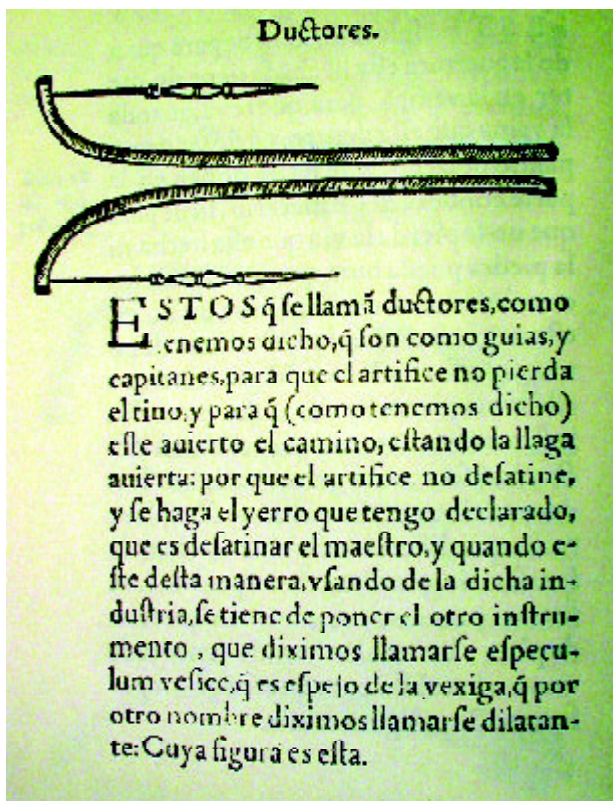 Ductores.
ESTOS q̃ ſe llamã ductores, como
tenemos dicho, q̃ ſon como guias, y
capitanes, para que el artifice no pierda
el tino, y para q̃ (como tenemos dicho)
eſte auierto el camino, eſtando la llaga
auierta: por que el artifice no deſatine,
y ſe haga el yerro que tengo declarado,
que es deſatinar el maeſtro, y quando e-
ſte deſta manera, vſando de la dicha in-
duſtria, ſe tiene de poner el otro inſtru-
mento, que diximos llamarſe eſpecu-
lum veſice, q̃ es eſpejo de la vexiga, q̃ por
otro nombre diximos llamarſe dilatan-
te: Cuya figura es eſta.